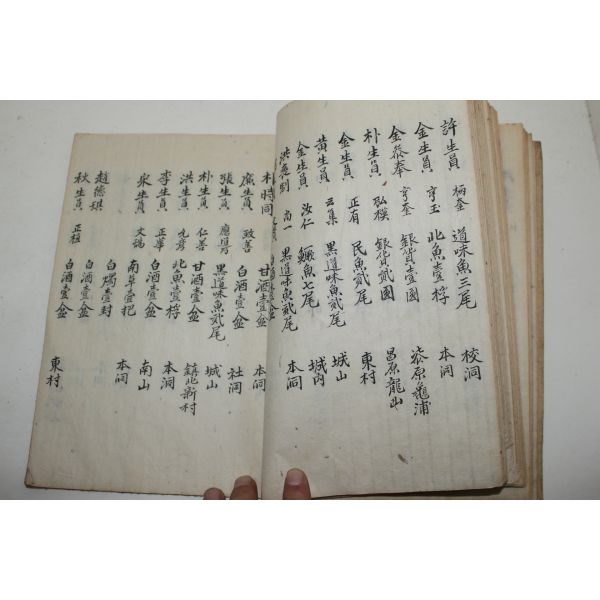 許生員 柄奎 道味魚三尾 校洞
金生員 亨玉 北魚壹桴 本洞
金參奉 亨奎 銀貨壹圓 柒原龜浦
朴生員 弘模 銀貨貳圓 昌原龍山
金生員 正有 民魚貳尾 東村
黃生員 云集 黑道味魚貳尾 城山
金生員 汝仁 鱖魚七尾 城內
尚一 黑道味魚貳尾 本洞
朴時同 甘酒壹盆 本洞
生員 致善 白酒壹盆 社洞
張生員 應 黑道味魚貳尾 城山
朴生員 仁善 甘酒壹盆 鎮北新村
洪生員 光彦 北魚壹桴 本洞
李生員 正華 白酒壹盆 南山
生員 文 南草壹把 本洞
趙德琪 白燭壹封
秋生員 正桓 白酒壹盆 東村